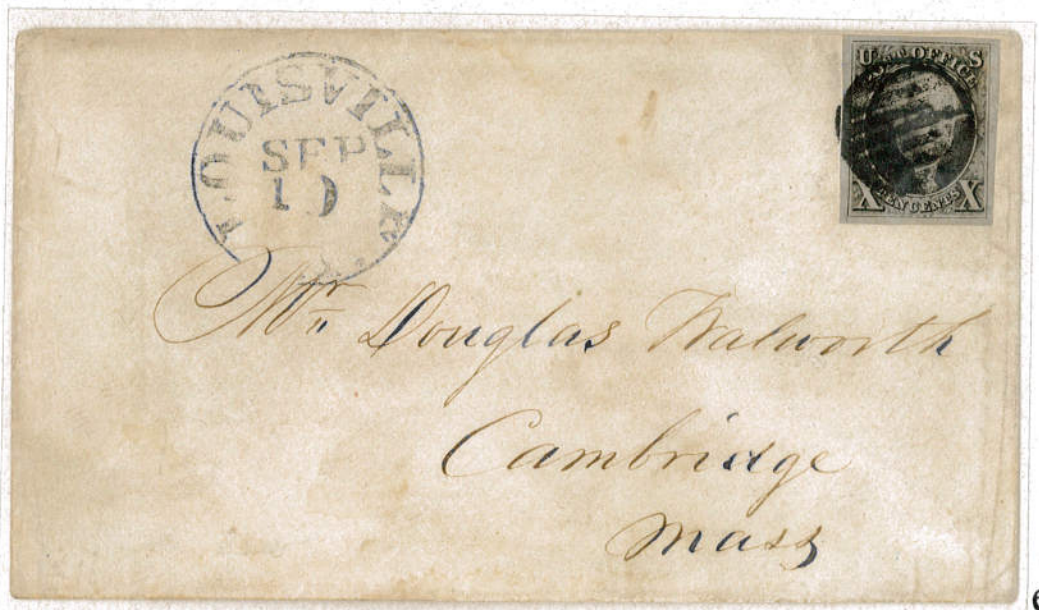 LOUISVILLE
SEP
10
U S
POST OFFICE
X TEN CENTS X
Mr Douglas Walworth
Cambridge
Mass